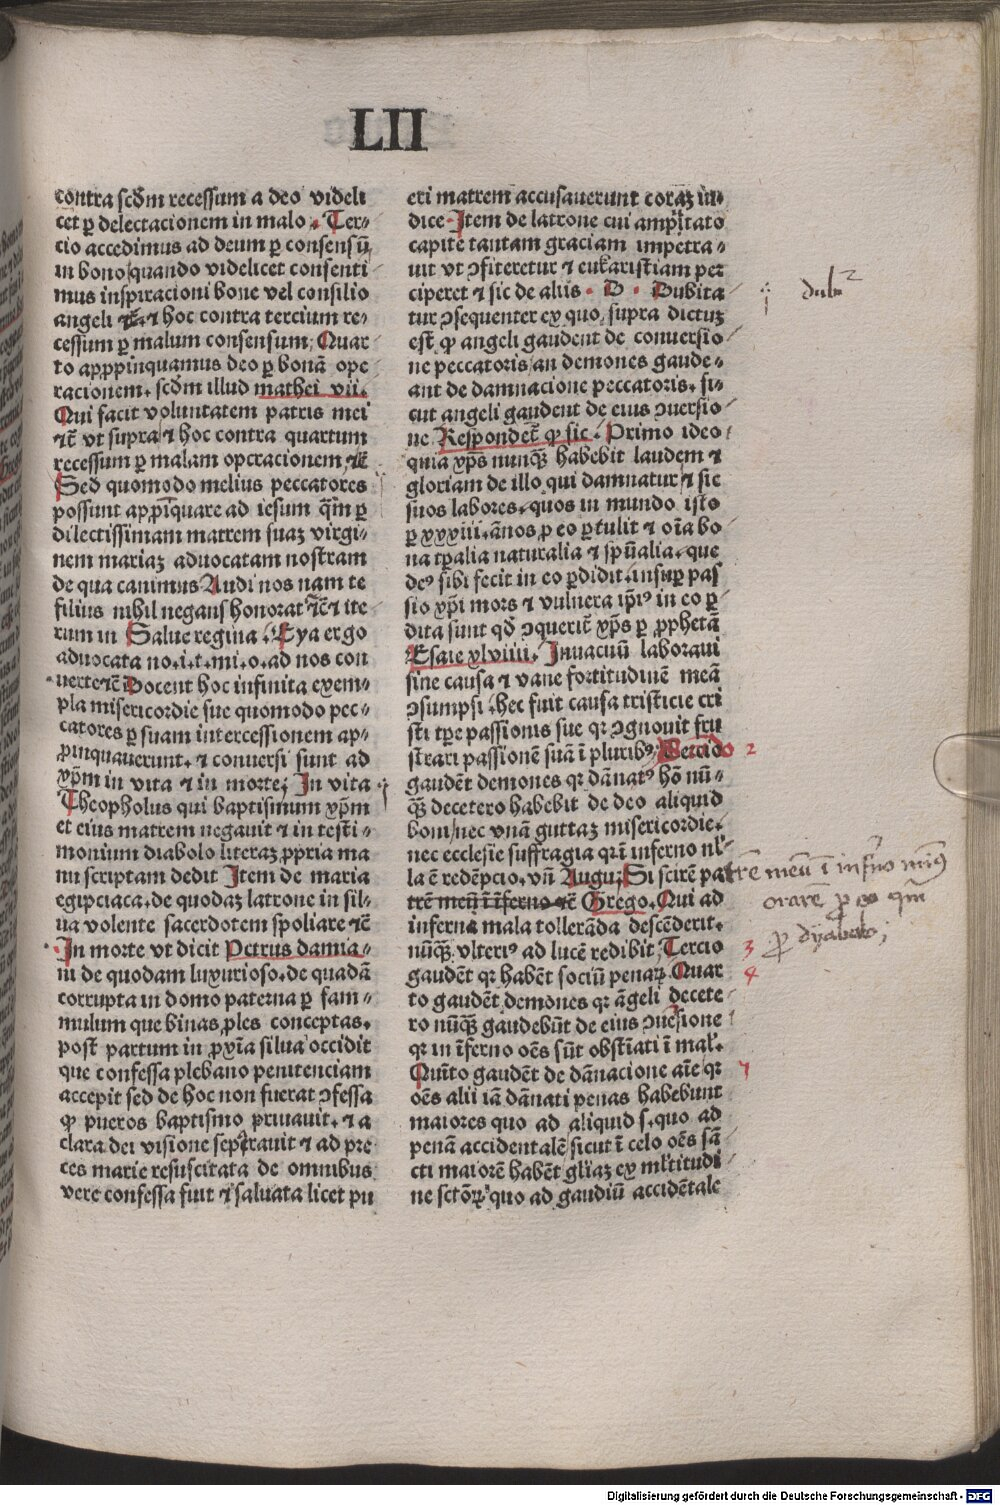 LII
contra scd̄m recessum a deo videli
cet ꝑ delectacionem in malo. Ter⸗
cio accedimus ad deum ꝑ consensū
in bono/quando videlicet consenti⸗
mus inspiracioni bone vel consilio
angeli ⁊c̄. ⁊ hoc contra tercium re⸗
cessum ꝑ malum consensum; Quar
to appropinquamus deo ꝑ bonā ope
racionem. scd̄m illud mathei vii.
Qui facit voluntatem patris mei
⁊c̄ vt supra/⁊ hoc contra quartum
recessum ꝑ malam operacionem ⁊c̄
Sed quomodo melius peccatores
possunt appīquare ad iesum q̄m ꝑ
dilectissimam matrem suaꝫ virgi⸗
nem mariaꝫ aduocatam nostram
de qua canimus Audi nos nam te
filius nihil negans honorat ⁊c̄ ⁊ ite⸗
rum in Salue regina. Eya ergo
aduocata no.i.t.mi.o.ad nos con
uerte ⁊c̄ Docent hoc infinita exem⸗
pla misericordie sue quomodo pec⸗
catores ꝑ suam intercessionem ap⸗
ꝓpinquauerunt. ⁊ conuersi sunt ad
xp̄m in vita ⁊ in morte; In vita
Theopholus qui baptismum xp̄m
et eius matrem negauit ⁊ in testi⸗
monium diabolo literaꝫ ꝓpria ma
nu scriptam dedit Item de maria
egipciaca.de quodaꝫ latrone in sil⸗
ua volente sacerdotem spoliare ⁊c̄
In morte vt dicit Petrus damia⸗
ni de quodam luxurioso.de quadā
corrupta in domo paterna ꝑ fam⸗
mulum que binas ꝓles conceptas.
post partum in ꝓxīa silua occidit
que confessa plebano penitenciam
accepit sed de hoc non fuerat ↄfessa
ꝙ pueros baptismo priuauit. ⁊ a
clara dei visione seperauit ⁊ ad pre
ces marie resuscitata de omnibus
vere confessa fuit ⁊ saluata licet pu
eri matrem accusauerunt coraꝫ iu⸗
dice Item de latrone cui amputato
capite tantam graciam impetra⸗
uit vt ↄfiteretur ⁊ eukaristiam per
ciperet ⁊ sic de aliis. D. Dubita
tur ↄsequenter ex quo supra dictuꝫ
est ꝙ angeli gaudent de conuersio⸗
ne peccatoris/an demones gaude⸗
ant de damnacione peccatoris. si⸗
cut angeli gaudent de eius ↄuersio⸗
ne Respondet̄ ꝙ sic. Primo ideo
quia xp̄s nunqꝫ habebit laudem ⁊
gloriam de illo qui damnatur/⁊ sic
suos labores.quos in mundo isto
ꝑ xxxiii.ānos ꝓ eo ꝑtulit ⁊ oīa bo⸗
na tꝑalia naturalia ⁊ spūalia.que
deꝰ sibi fecit in eo ꝑdidit.insuꝑ pas
sio xp̄i mors ⁊ vulnera ip̄iꝰ in eo ꝑ⸗
dita sunt qd̄ ↄquerit̄ xp̄s ꝑ ꝓphetā
Esaie xlviiii. Inuacuū laboraui
sine causa ⁊ vane fortitudinē meā
ↄsumpsi.hec fuit causa tristicie cri
sti tꝑe passionis sue qꝛ ↄgnouit fru
strari passionē suā ī pluribꝰ; Secūdo
gaudēt demones qꝛ dānatꝰ hō nū⸗
qꝫ decetero habebit de deo aliquid
boni/nec vnā guttaꝫ misericordie.
nec ecclesie suffragia qꝛ ī inferno nl̄
la ē redēpcio.vn̄ Augu; Si scirē pa
trē meū ī īferno ⁊c̄ Grego. Qui ad
inferna mala tollerāda descēderit.
nūqꝫ vlteriꝰ ad lucē redibit; Tercio
gaudēt qꝛ habēt sociū penaꝝ Quar
to gaudēt demones qꝛ āgeli decete⸗
ro nūqꝫ gaudebūt de eius ↄuēsione
qꝛ in īferno oēs sūt obstīati ī mal'.
Quīto gaudēt de dānacione aīe qꝛ
oēs alii iā dānati penas habebunt
maiores quo ad aliquid s.quo ad
penā accidentalē/sicut ī celo oēs sā
cti maiorē habēt gl̄iaꝫ ex ml̄titudi⸗
ne sctōꝝ quo ad gaudiū accidētale
2
trē meū ī inf̄no minꝰ
orarē ꝓ eo qm̄
ꝓ dyabolo;
3
4